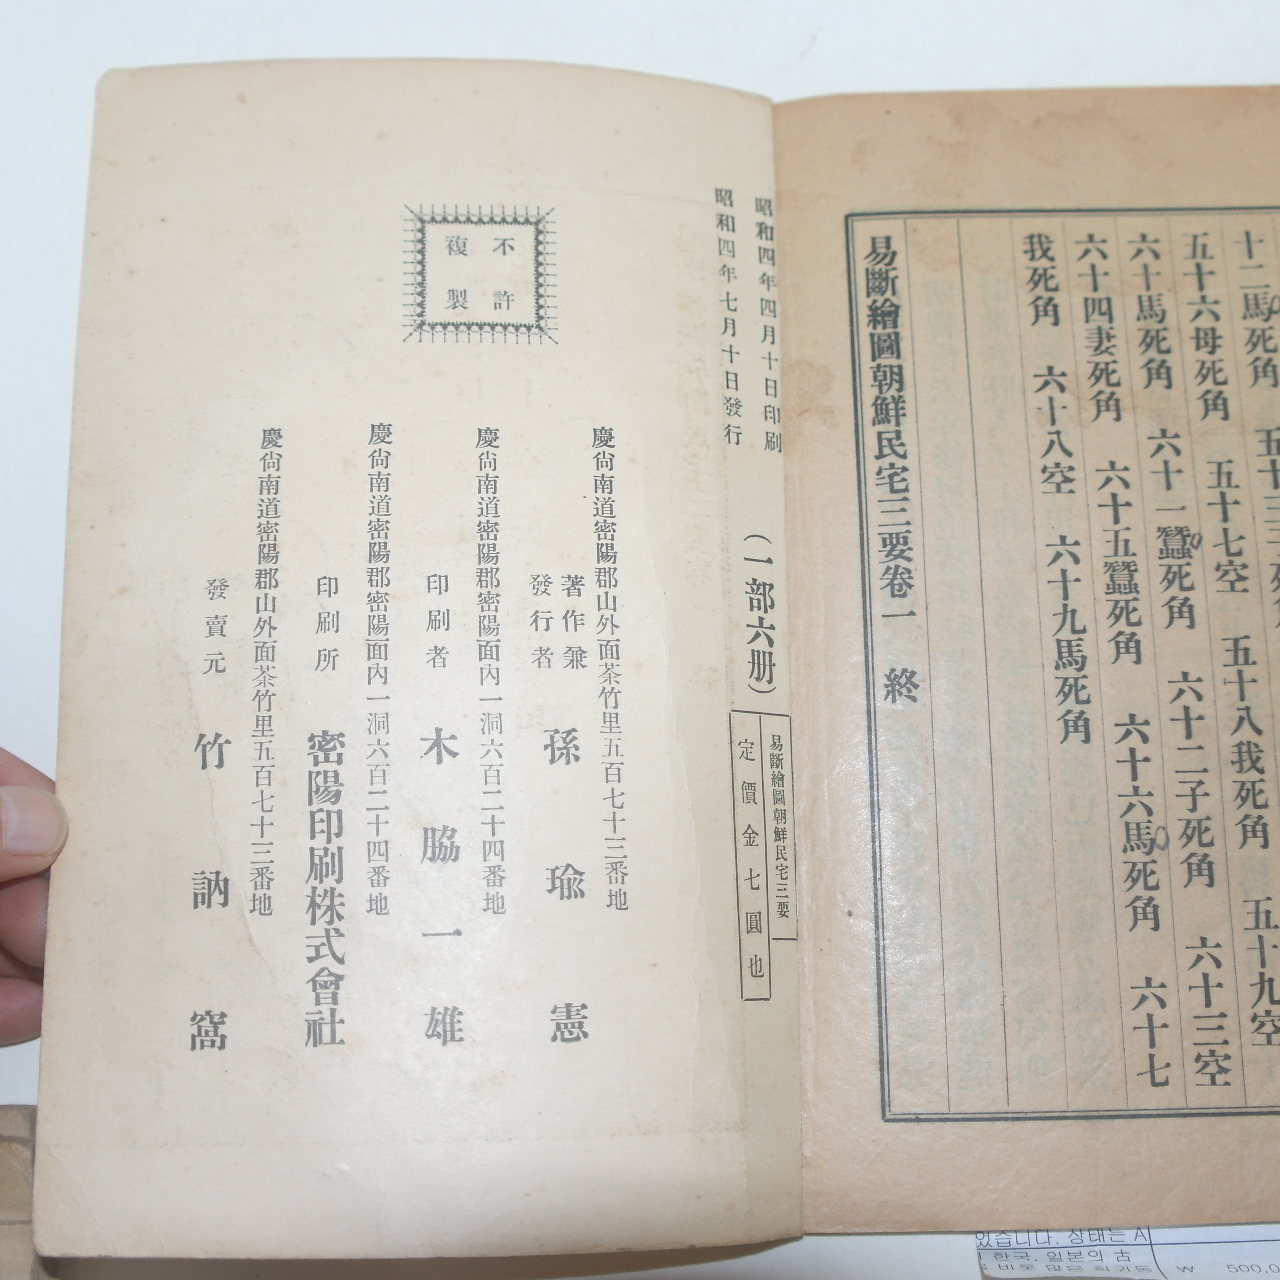 十二馬死角
五十六母死角　五十七空　五十八我死角　五十九空
六十馬死角　六十一蠶死角　六十二子死角　六十三空
六十四妻死角　六十五蠶死角　六十六馬死角　六十七
我死角　六十八空　六十九馬死角
易斷繪圖朝鮮民宅三要卷一　終
昭和四年四月十日印刷
昭和四年七月十日發行
（一部六册）
易斷繪圖朝鮮民宅三要
定價金七圓也
不許
複製
慶尙南道密陽郡山外面茶竹里五百七十三番地
著作兼
發行者　孫瑜憲
慶尙南道密陽郡密陽面內一洞六百二十四番地
印刷者　木脇一雄
慶尙南道密陽郡密陽面內一洞六百二十四番地
印刷所　密陽印刷株式會社
慶尙南道密陽郡山外面茶竹里五百七十三番地
發賣元　竹訥窩
었습니다. 상태는 A
한국. 일본의 古
₩ 500,0